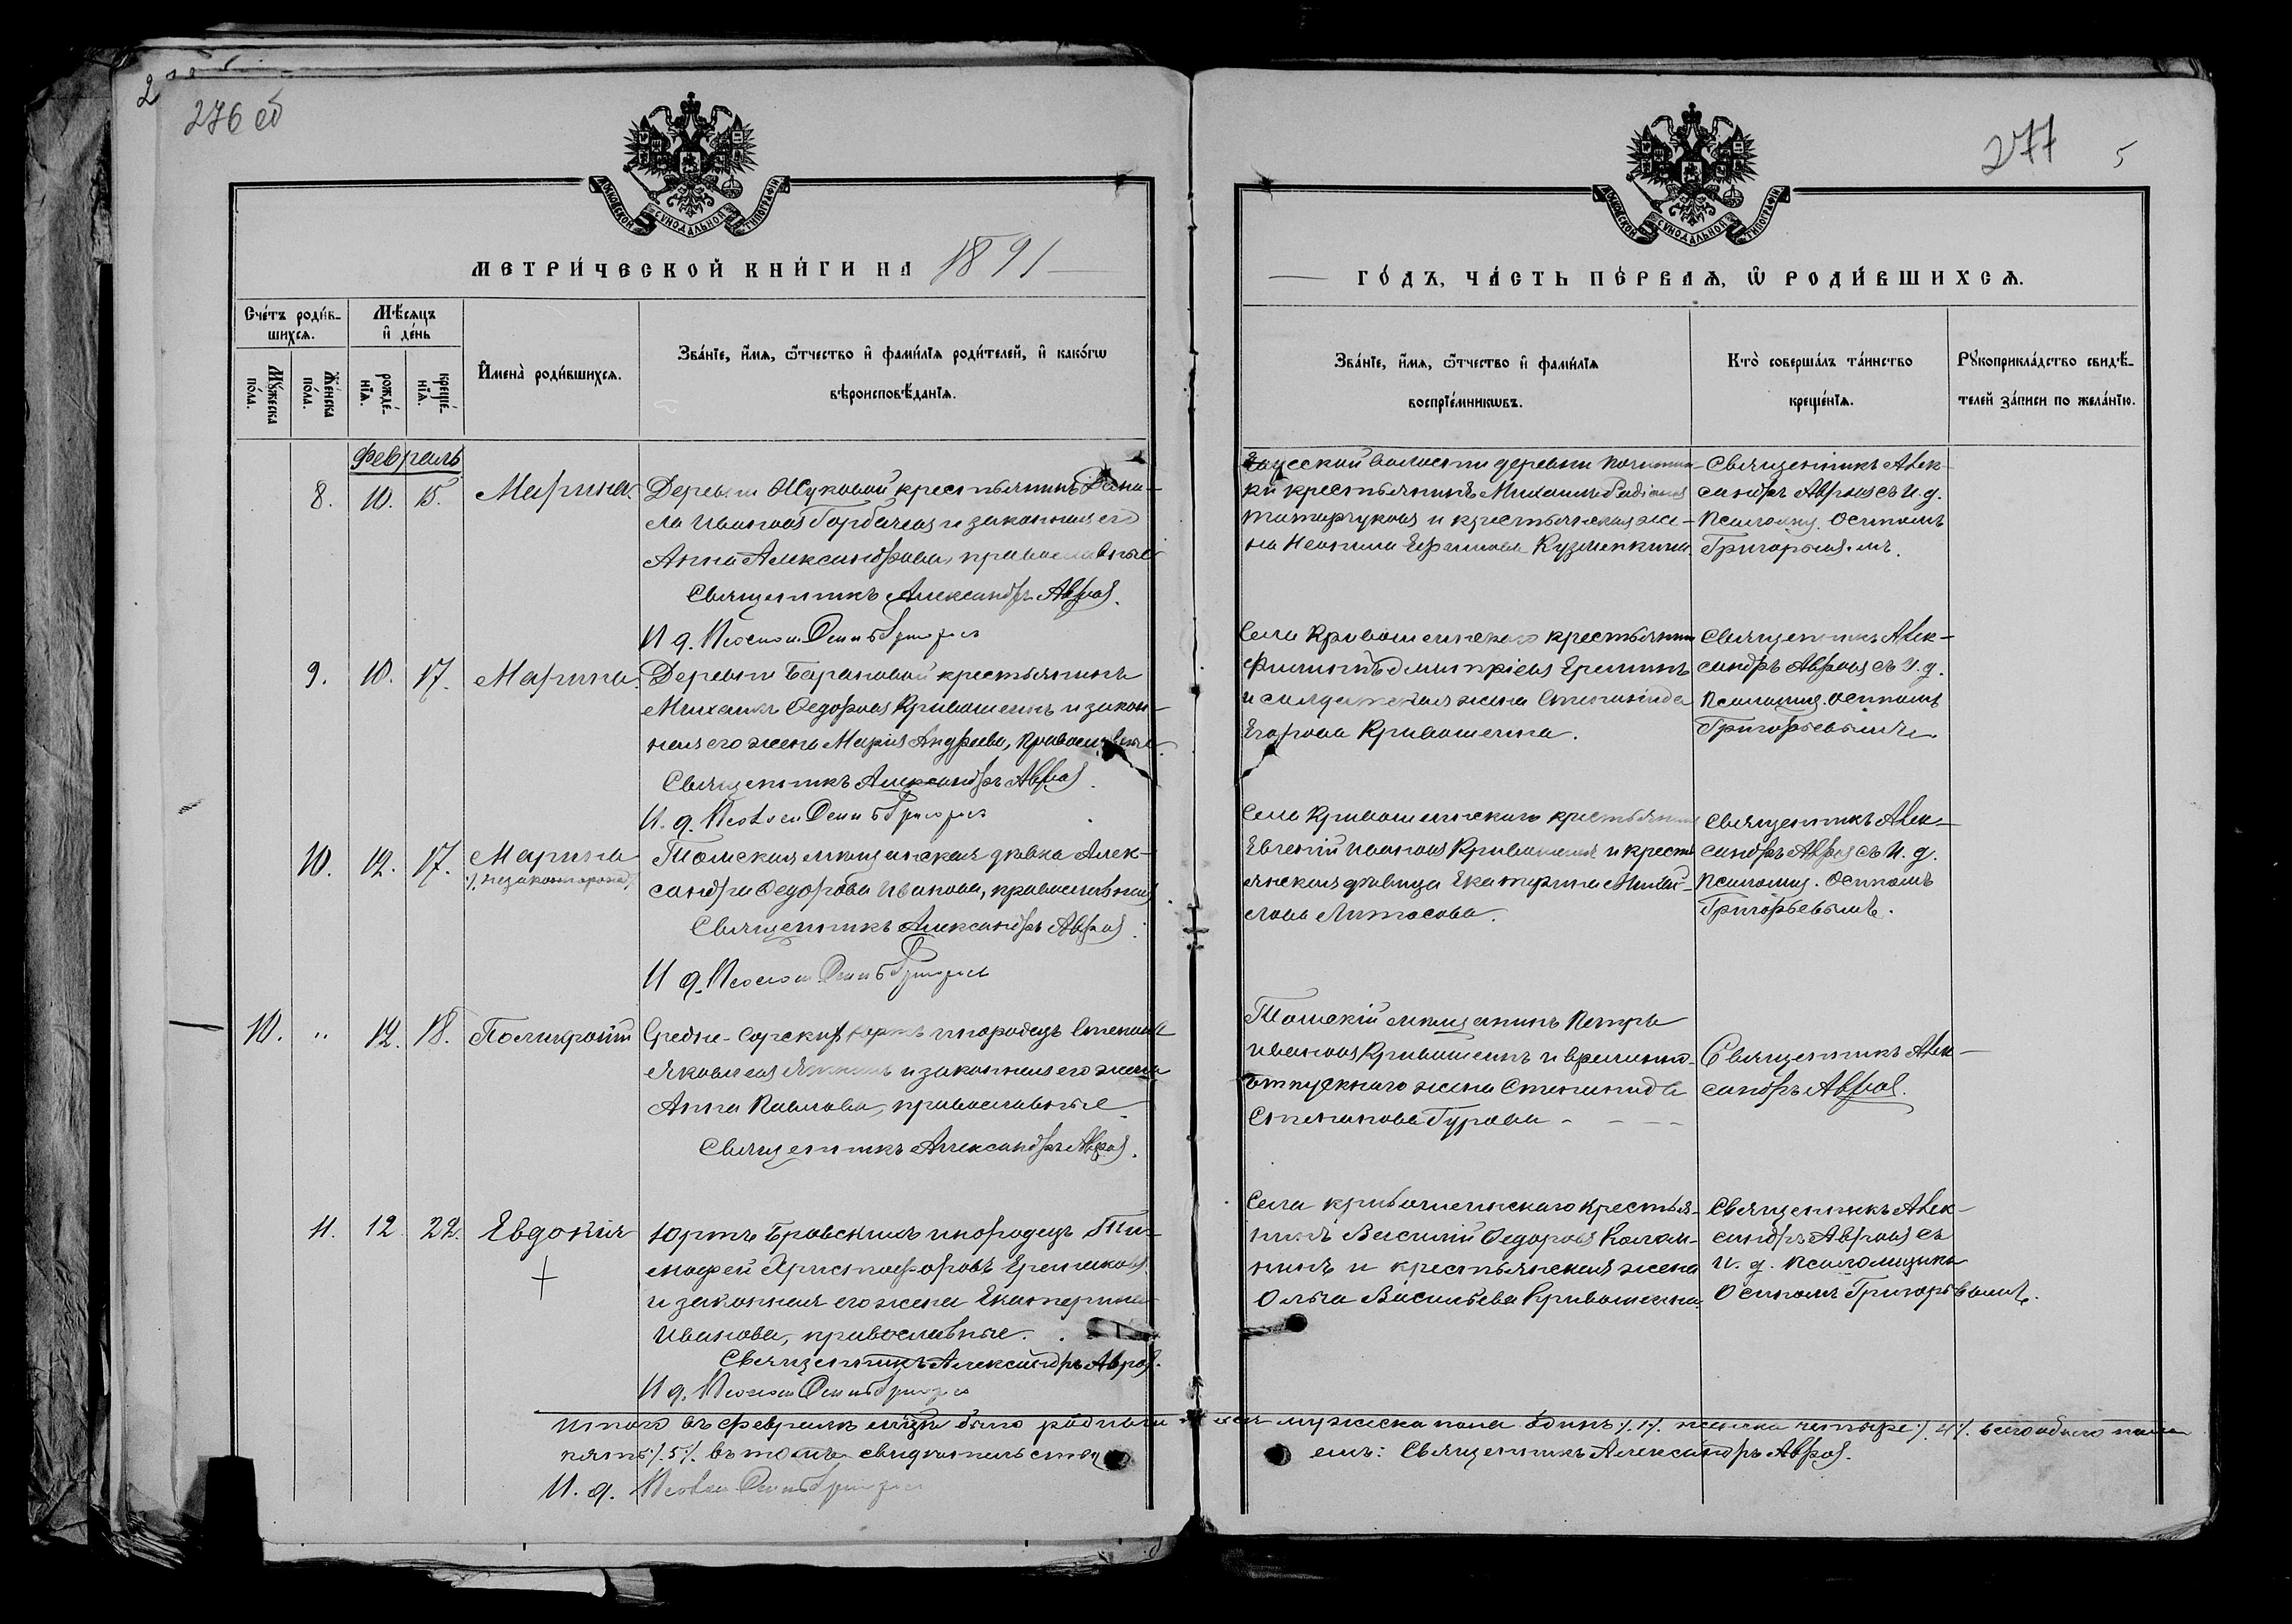 2
276 об
МОСКОВСКОЙ СУНОДАЛЬНОЙ ТИПОГРАФІИ
МЕТРИ́ЧЕСКОЙ КНИ́ГИ НА 1891
Сче́тъ роди́в-
шихсѧ.
Мѣ́сѧцъ
и҆ де́нь
Мꙋ́жеска
по́ла.
Же́нска
по́ла.
рожде́-
нїѧ.
креще́-
нїѧ.
И҆мена̀ роди́вшихсѧ.
Зва́нїе, и҆́мѧ, ѻ҆́тчество и҆ фамї́лїѧ роди́телей, и҆ како́гѡ
вѣроисповѣ́данїѧ.
Февраль
8. 10. 15. Марина Деревни Жуковой крестьянинъ Дани-
ла Ивановъ Горбачевъ и законная его
Анна Александрова, православные
Священникъ Александръ Авровъ.
И д. Псалом Осипъ Григорьев
9. 10. 17. Марина. Деревни Барановой крестьянинъ
Михаилъ Федоровъ Кривошеинъ и закон-
ная его жена Марія Андреева, православные.
Священникъ Александръ Авровъ.
И. д. Псалом Осипъ Григорьев
10. 12. 17. Марина Томская мещанская девка Алек-
/. незаконнорожд.
сандра Федорова Иванова, православная
Священникъ Александръ Авровъ.
И д. Псалом Осипъ Григорьев
10. " 12. 18. Средне- инородецъ Степанъ
Яковлевъ и законная его жена
Анна Павлова, православные.
Священникъ Александръ Авровъ.
11. 12 22. Евдокія Юртъ инородецъ Ти-
мофей Христофоровъ
и законная его жена Екатерина
Иванова, православные.
Священникъ Александръ Авров.
И д. Псалом Осипъ Григорьев
Итого въ февралѣ месяце было мужеска пола одинъ /.1/. женска четыре /.4/. всего
пять /.5/. въ томъ свидѣтельству
емъ: Священникъ Александръ Авровъ.
И. д. Псалом Осипъ Григорьев
277
5
МОСКОВСКОЙ СУНОДАЛЬНОЙ ТИПОГРАФІИ
ГО́ДЪ, ЧА́СТЬ ПЕ́РВАѦ, Ѡ҆ РОДИ́ВШИХСѦ.
Зва́нїе, и҆́мѧ, ѻ҆́тчество и҆ фамї́лїѧ
воспрїе́мникѡвъ.
Кто̀ соверша́лъ та́инство
креще́нїѧ.
Рꙋкоприкла́дство свидѣ́-
телей за́писи по жела́нїю.
волости деревни
крестьянинъ Михаилъ
и крестьянская же-
на Ефимова Кузменкина
Священникъ Алек-
сандръ Авровъ съ И. д.
Псаломщ. Осипомъ
Села Кривошеинскаго крестьянин
Дмитріевъ Ереминъ
и солдатская жена Степанида
Егорова Кривошеина.
Священникъ Алек-
сандръ Авровъ съ И. д.
Псаломщ. Осипомъ
Григорьевымъ.
Села Кривошеинскаго крестьянин
Евгеній Ивановъ Кривошеинъ и кресть
янская девица Екатерина Михай-
лова
Священникъ Алек-
сандръ Авровъ съ И. д.
Псаломщ. Осипомъ
Григорьевымъ.
Томскій мещанинъ Петръ
Ивановъ Кривошеинъ и временно-
отпускного жена Степанида
Степанова Гурова -
Священникъ Алек-
сандръ Авровъ.
Села Кривошеинскаго крестья-
нинъ Василій Федоровъ
и крестьянская жена
Ольга Васильева Кривошеина.
Священникъ Алек-
сандръ Авровъ съ
И. д. псаломщика
Осипомъ Григорьевымъ.